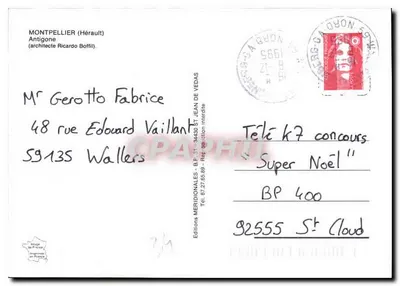 MONTPELLIER (Hérault)
Antigone
(architecte Ricardo Bofill).
Mr Gerotto Fabrice
48 rue Edouard Vaillant
59135 Wallers
Editions MERIDIONALES - B.P. 34430 ST JEAN DE VEDAS
Tél. 67.27.65.89 - Reproduction interdite
NORD
1995
Télé K7 concours
"Super Noël"
BP 400
92555 St Cloud